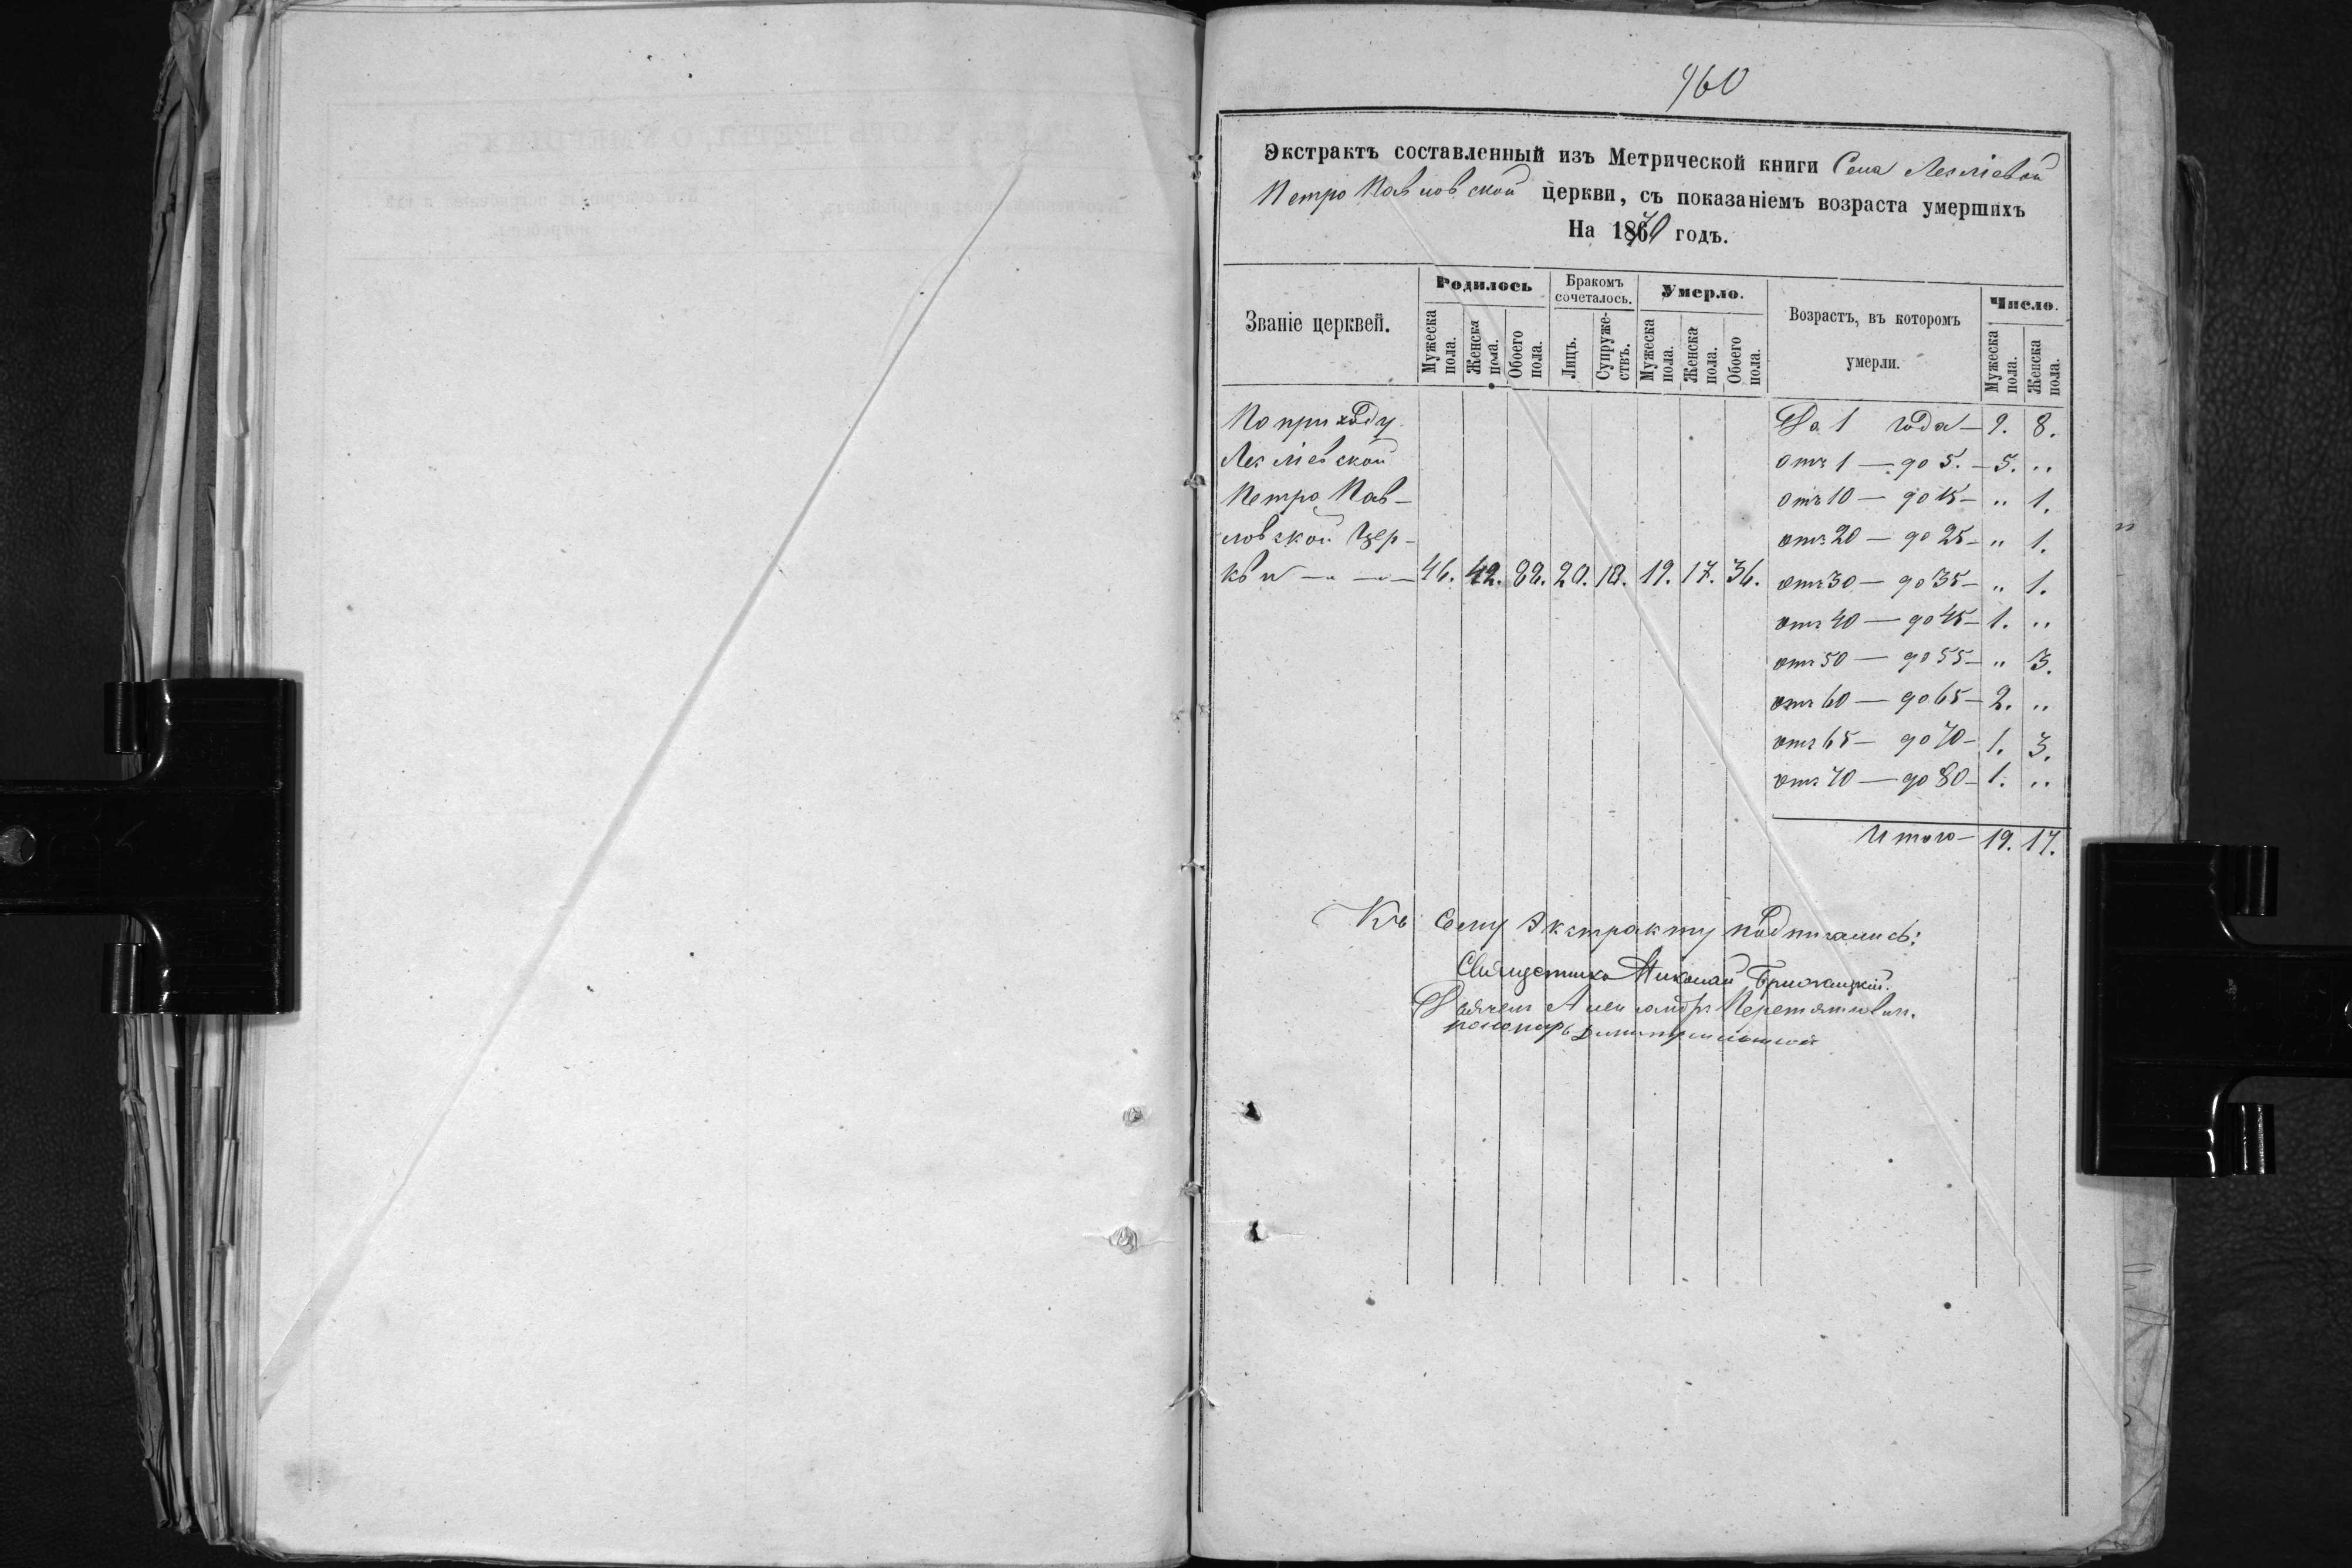 960
Экстрактъ составленный изъ Метрической книги Села
Петро Павловской церкви, съ показаніемъ возраста умершихъ
На 1870 годъ.
Званіе церквей. Родилось Бракомъ сочеталось. Умерло. Возрастъ, въ которомъ умерли. Число.
Мужеска пола. Женска пола. Обоего пола. Лицъ. Супружествъ. Мужеска пола. Женска пола. Обоего пола. Мужеска пола. Женска пола.
По приходу До 1 года — 9. 8.
отъ 1 — до 5. — 5. „
Петро Пав- отъ 10 — до 15 — „ 1.
ловской Цер- отъ 20 — до 25 — „ 1.
кви — „ — „ — 46. 42. 88. 20. 10. 19. 17. 36. отъ 30 — до 35 — „ 1.
отъ 40 — до 45 — 1. „
отъ 50 — до 55 — „ 3.
отъ 60 — до 65 — 2. „
отъ 65 — до 70 — 1. 3.
отъ 70 — до 80 — 1. „
Итого — 19. 17.
Къ Сему Экстракту подписались:
Священникъ Николай
Дьячекъ Александръ
пономарь